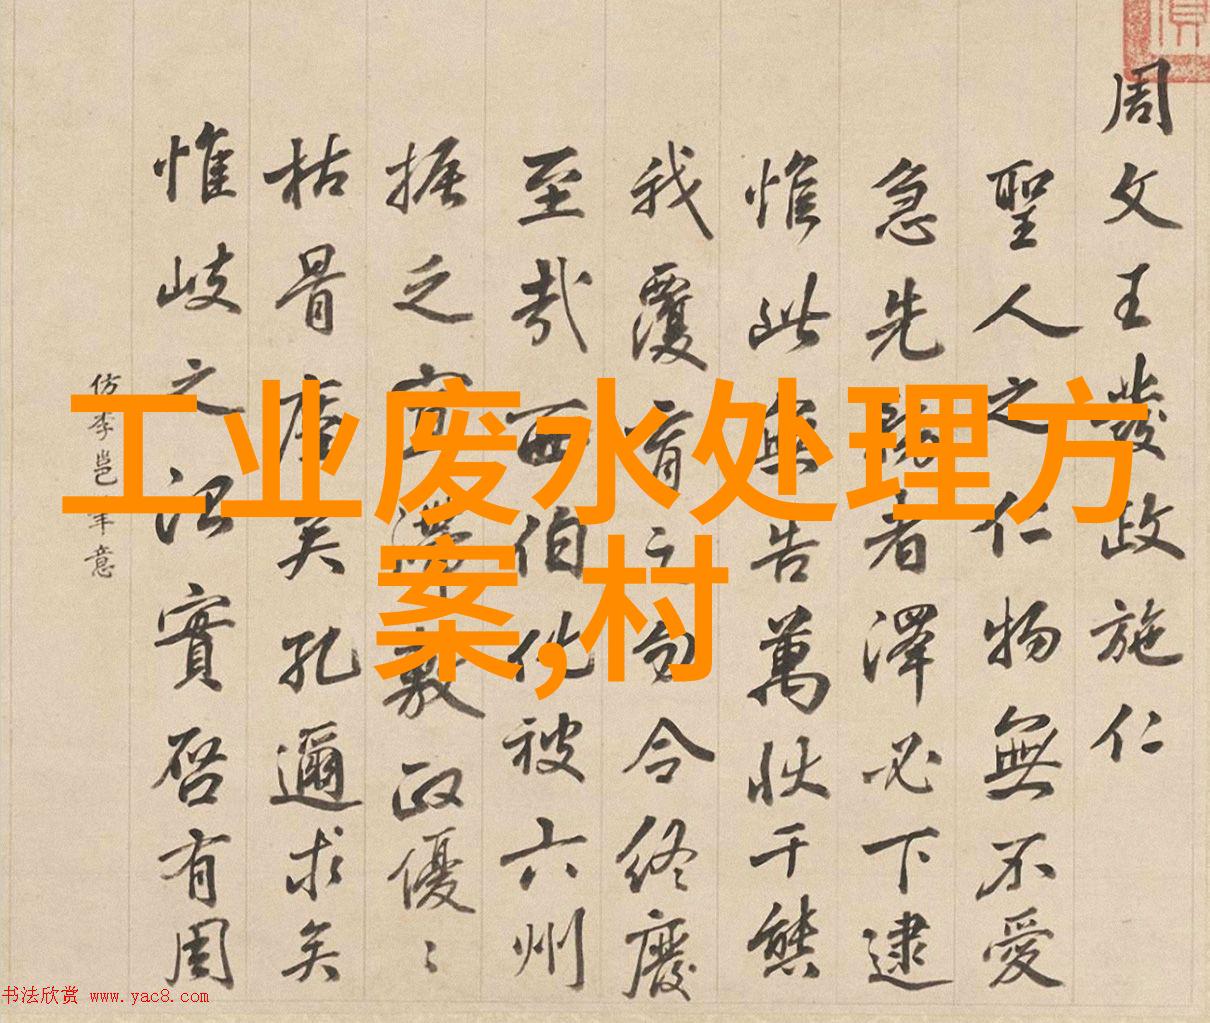 周文王發政施仁
聖人之仁物無不愛
急先者澤必下逮
惟此無告萬狀千態
我覆育之勿令終廢
至哉西伯化被六州
振乏滯敷政優〻
枯骨矣孔邇求矣
惟岐之治實啓有周
仿李邕筆意
工业废水处理方
案,村
书法欣赏 www.yac8.com